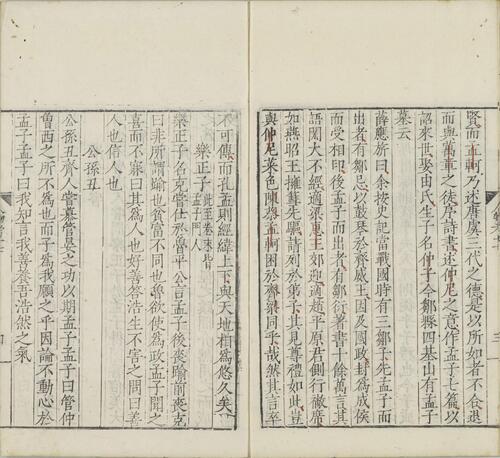 賢而孟軻乃述唐虞三代之德是以所如者不合退
而與萬章之徒序詩書述仲尼之意作孟子七篇以
詔來世娶由氏生子名仲子今鄒縣四基山有孟子
墓云
薛應旂曰余按史記當戰國時有三鄒子先孟子而
出者有鄒忌以鼓琴於齊威王因及國政封爲成侯
而受相印後孟子而出者有鄒衍著書十餘萬言其
語閎大不經適梁惠王郊迎適趙平原君側行襒席
如燕昭王擁篲先驅請列於弟子其見尊禮如此豈
與仲尼菜色陳蔡孟軻困於齊梁同乎哉然其言卒
不可傳而孔孟則經緯上下與天地相爲悠久矣
樂正子
此至卷末皆
孟子門人
樂正子名克嘗仕於魯平公言孟子後喪踰前喪克
曰非所謂踰也貧富不同也魯欲使爲政孟子聞之
喜而不寐曰其爲人也好善浩生不害之問曰善
人也信人也
公孫丑
公孫丑齊人嘗慕管晏之功以期孟子孟子曰管仲
曾西之所不爲也而子爲我願之乎因論不動心於
孟子孟子曰我知言我善養吾浩然之氣